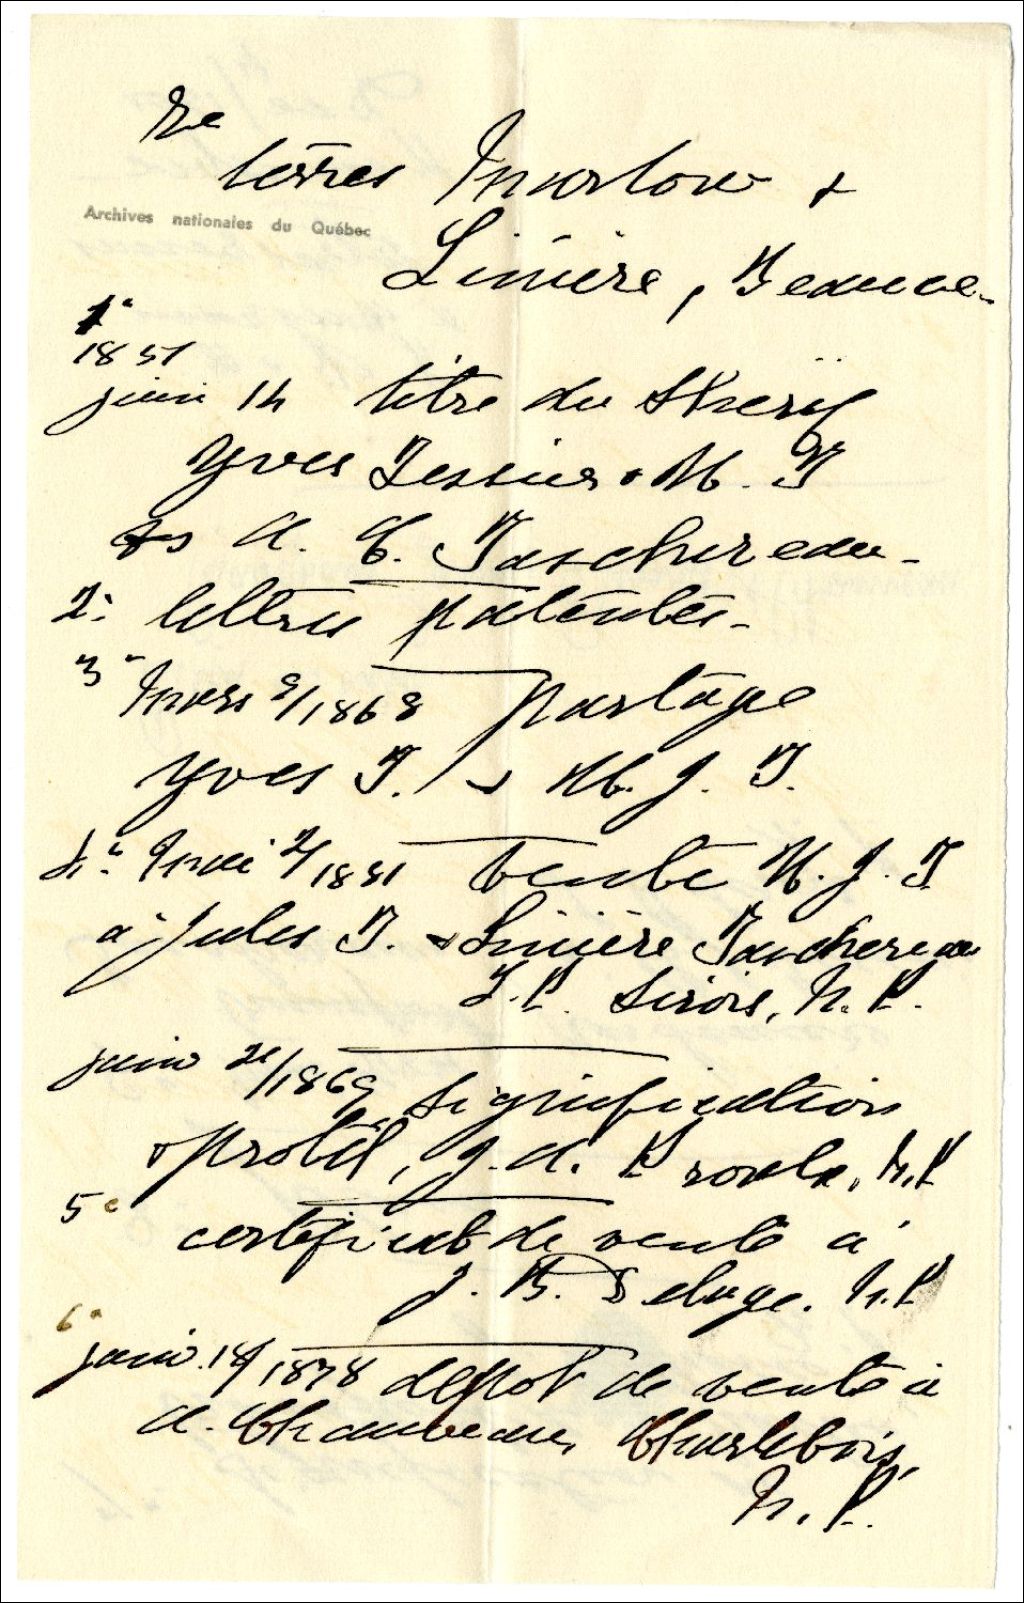 Re
terres Marlow &
Archives nationales du Québec
Linière, Beauce.
1°
1851
juin 14 titre du Shérif
Yves Tessier & M. T
vs A. C. Taschereau.
2° lettres patentes.
3° Mars 9/1868 partage
Yves T. / & M. J. T.
4° Mai 2/1881 vente M. J. T
à Jules T. & Linière Taschereau
L. P. Sirois, N. P.
juin 21/1869 signification
& protêt, J. A. N. P
5° certificat de vente à
J. B. Delage. N. P
6°
juin 18/1878 dépôt de vente à
A. Chauveau, Charlebois,
N. P.